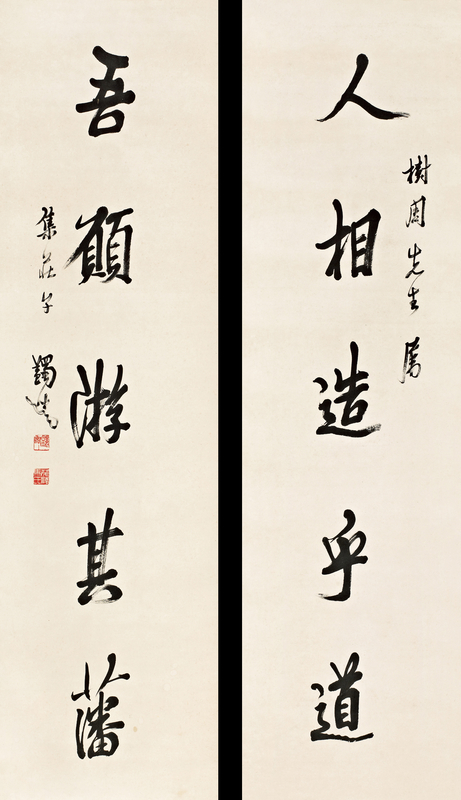 樹周先生屬
人相造乎道
吾願游其藩
集莊子 蠲叟